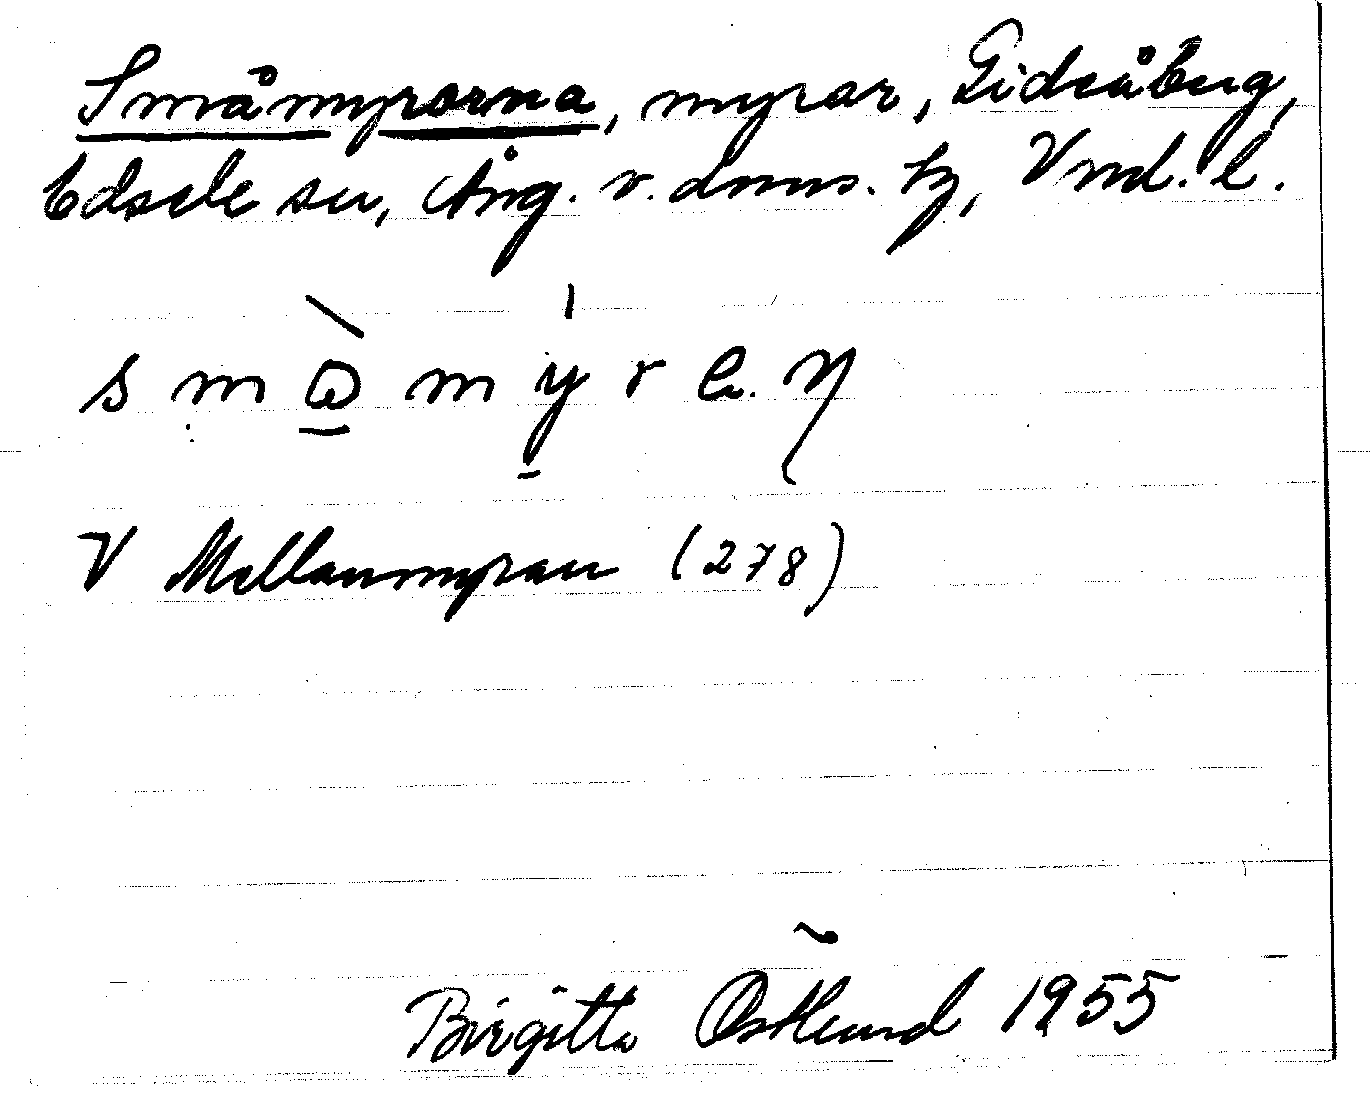 Småmyrorna, myrar, Gideåberg,
Edsele sn, Ång. v. doms. tg, Vnd. l.
V Mellanmyran (278)
Birgitta Östlund 1955